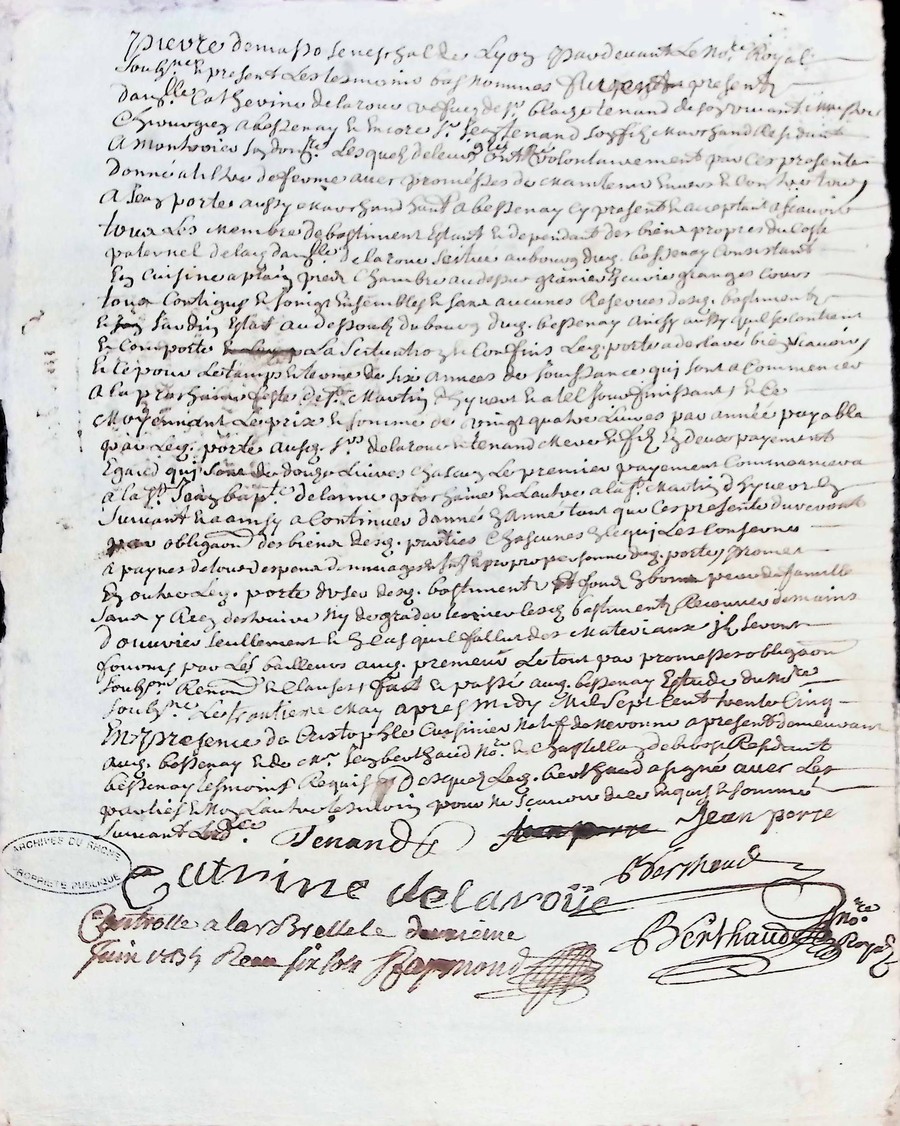 pierre demasso seneschal de Lyon par devant Le No.re Royal
soubs.ne et present Les tesmoins bas nommes furent presents
dam.lle Catherine delaroue vefve de s.r blaize tenand de son vivant
Chirurgien a bessenay et Encore s.r Jean tenand son fils Marchand Residant
A Montrotier Lesquels de leurs gré ont volontairement par ces presentes
donné a tiltre de ferme avec promesses de maintenir Envers et Contre tous
A Jean porte aussy Marchand hant a bessenay cy present et acceptant a scavoir
tous Les Membre de bastiment Estant et dependant des biens propres du Coste
paternel de lad. dam.lle delaroue scitue au bourg dud. bessenay Consistant
En Cuisine a plain pied Chambre au dessus grenier Escurie granges Cours
tous Contigus et Joingt Ensembles et sans aucunes Reserves desd. bastiments
et Jardin Estant au dessoub du bourg dud. bessenay ainsy aussy quil se contient
et Comporte La scituation et Confins Led. porte a declaré bien scavoir
et ce pour Le temps et terme de six Années de Jouissance qui sont a Commencer
a La prochaine feste de s.t Martin d'hyvert et a tel Jour finissants et ce
Moyennant Le prix et somme de vingt quatre Livres par année payable
par Led. porte ausd. delaroue et tenand Mere et fils En deux payement
Egaux qui sont de douze Livres Chascun Le premier payement Commencera
a la s.t Jean bap.te de lanné prochaine et Lautre a la s.t Martin d'hyver
suivant et a ainsy a Continuer danné En Anné tant que Ces presente dureront
par obligaon des biens desd. parties Chascunes En Ce qui Les Conserne
a paynes de tous despens dommages et propre personne dud. porte promet
En outre Led. porte duser desd. bastiments et fond En bon pere de famille
sans y Rien destruire Ny degrader Lesd. bastiments Recouvrir de mains
d'ouvrier seullement et En Cas quil fallut des Materiaux ils seront
fournis par Les bailleurs aud. premeur Le tout par promesses obligaon
soubm.on Renon.on et Clauses fait et passé aud. bessenay Estude du No.re
soubs.ne Le trentieme May apres midy Mil sept Cent trente Cinq
En presence de Cristophle Cuisinier Natif de Nevonne a present demeurant
aud. bessenay et de M.r Jean berthaud No.re et Chastellain Residant
bessenay tesmoins Requis Desquels Led. berthaud a signé avec Les
parties et Non Lautre tesmoin pour ne scavoir de ce Enquis et sommé
suivant Lord.ce Tenand Jean perre Jean perre
Catrine delaroüe Berthaud
Controlle a la Brelle le deuxième
Juin 1735 Receu six sols Raymond Berthaud No.re Royal
ARCHIVES DU RHÔNE
PROPRIÉTÉ PUBLIQUE